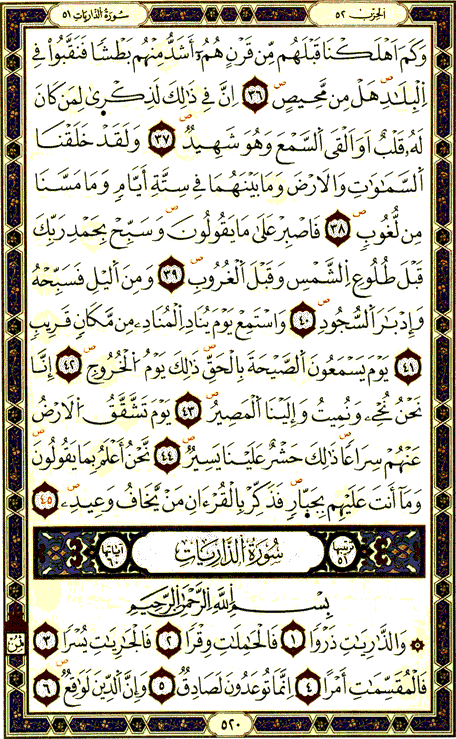 الحزب ٥٢
سورة الذاريات ٥١
وَكَمَ اَهْلَكْنَا قَبْلَهُم مِّن قَرْنٍ هُمُۥٓ أَشَدُّ مِنْهُم بَطْشًا فَنَقَّبُوا۟ فِے
اِ۬لْبِلَٰدِ هَلْ مِن مَّحِيصٍ ٣٦ اِنَّ فِے ذَٰلِكَ لَذِكْر۪ىٰ لِمَن كَانَ
لَهُۥ قَلْبٌ اَوَ اَلْقَى اَ۬لسَّمْعَ وَهُوَ شَهِيدٌ ٣٧ وَلَقَدْ خَلَقْنَا
اَ۬لسَّمَٰوَٰتِ وَالَارْضَ وَمَا بَيْنَهُمَا فِے سِتَّةِ أَيَّامٍ وَمَا مَسَّنَا
مِن لُّغُوبٍ ٣٨ فَاصْبِرْ عَلَىٰ مَا يَقُولُونَ وَسَبِّحْ بِحَمْدِ رَبِّكَ
قَبْلَ طُلُوعِ اِ۬لشَّمْسِ وَقَبْلَ اَ۬لْغُرُوبِ ٣٩ وَمِنَ اَ۬ليْلِ فَسَبِّحْهُ
وَإِدْبَٰرَ اَ۬لسُّجُودِ ٤٠ وَاسْتَمِعْ يَوْمَ يُنَادِ اِ۬لْمُنَادِۦ مِن مَّكَانٍ قَرِيبٍ
٤١ يَوْمَ يَسْمَعُونَ اَ۬لصَّيْحَةَ بِالْحَقِّ ذَٰلِكَ يَوْمُ اُ۬لْخُرُوجِ ٤٢ إِنَّا
نَحْنُ نُحْيِۦ وَنُمِيتُ وَإِلَيْنَا اَ۬لْمَصِيرُ ٤٣ يَوْمَ تَشَّقَّقُ اُ۬لَارْضُ
عَنْهُمْ سِرَاعًا ذَٰلِكَ حَشْرٌ عَلَيْنَا يَسِيرٌ ٤٤ نَّحْنُ أَعْلَمُ بِمَا يَقُولُونَ
وَمَآ أَنتَ عَلَيْهِم بِجَبّ۪ارٍ فَذَكِّرْ بِالْقُرْءَانِ مَنْ يَّخَافُ وَعِيدِۦ ٤٥
ترتيبها ٥١ سُورَةُ الذَّارِيَاتِ آياتها ٦٠
بِسْمِ اِ۬للَّهِ اِ۬لرَّحْمَٰنِ اِ۬لرَّحِيمِ
وَالذَّٰرِيَٰتِ ذَرْوًا ١ فَالْحَٰمِلَٰتِ وِقْرًا ٢ فَالْجَٰرِيَٰتِ يُسْرًا ٣
ثمن
فَالْمُقَسِّمَٰتِ أَمْرًا ٤ اِنَّمَا تُوعَدُونَ لَصَادِقٌ ٥ وَإِنَّ اَ۬لدِّينَ لَوَٰقِعٌ ٦
٥٢٠